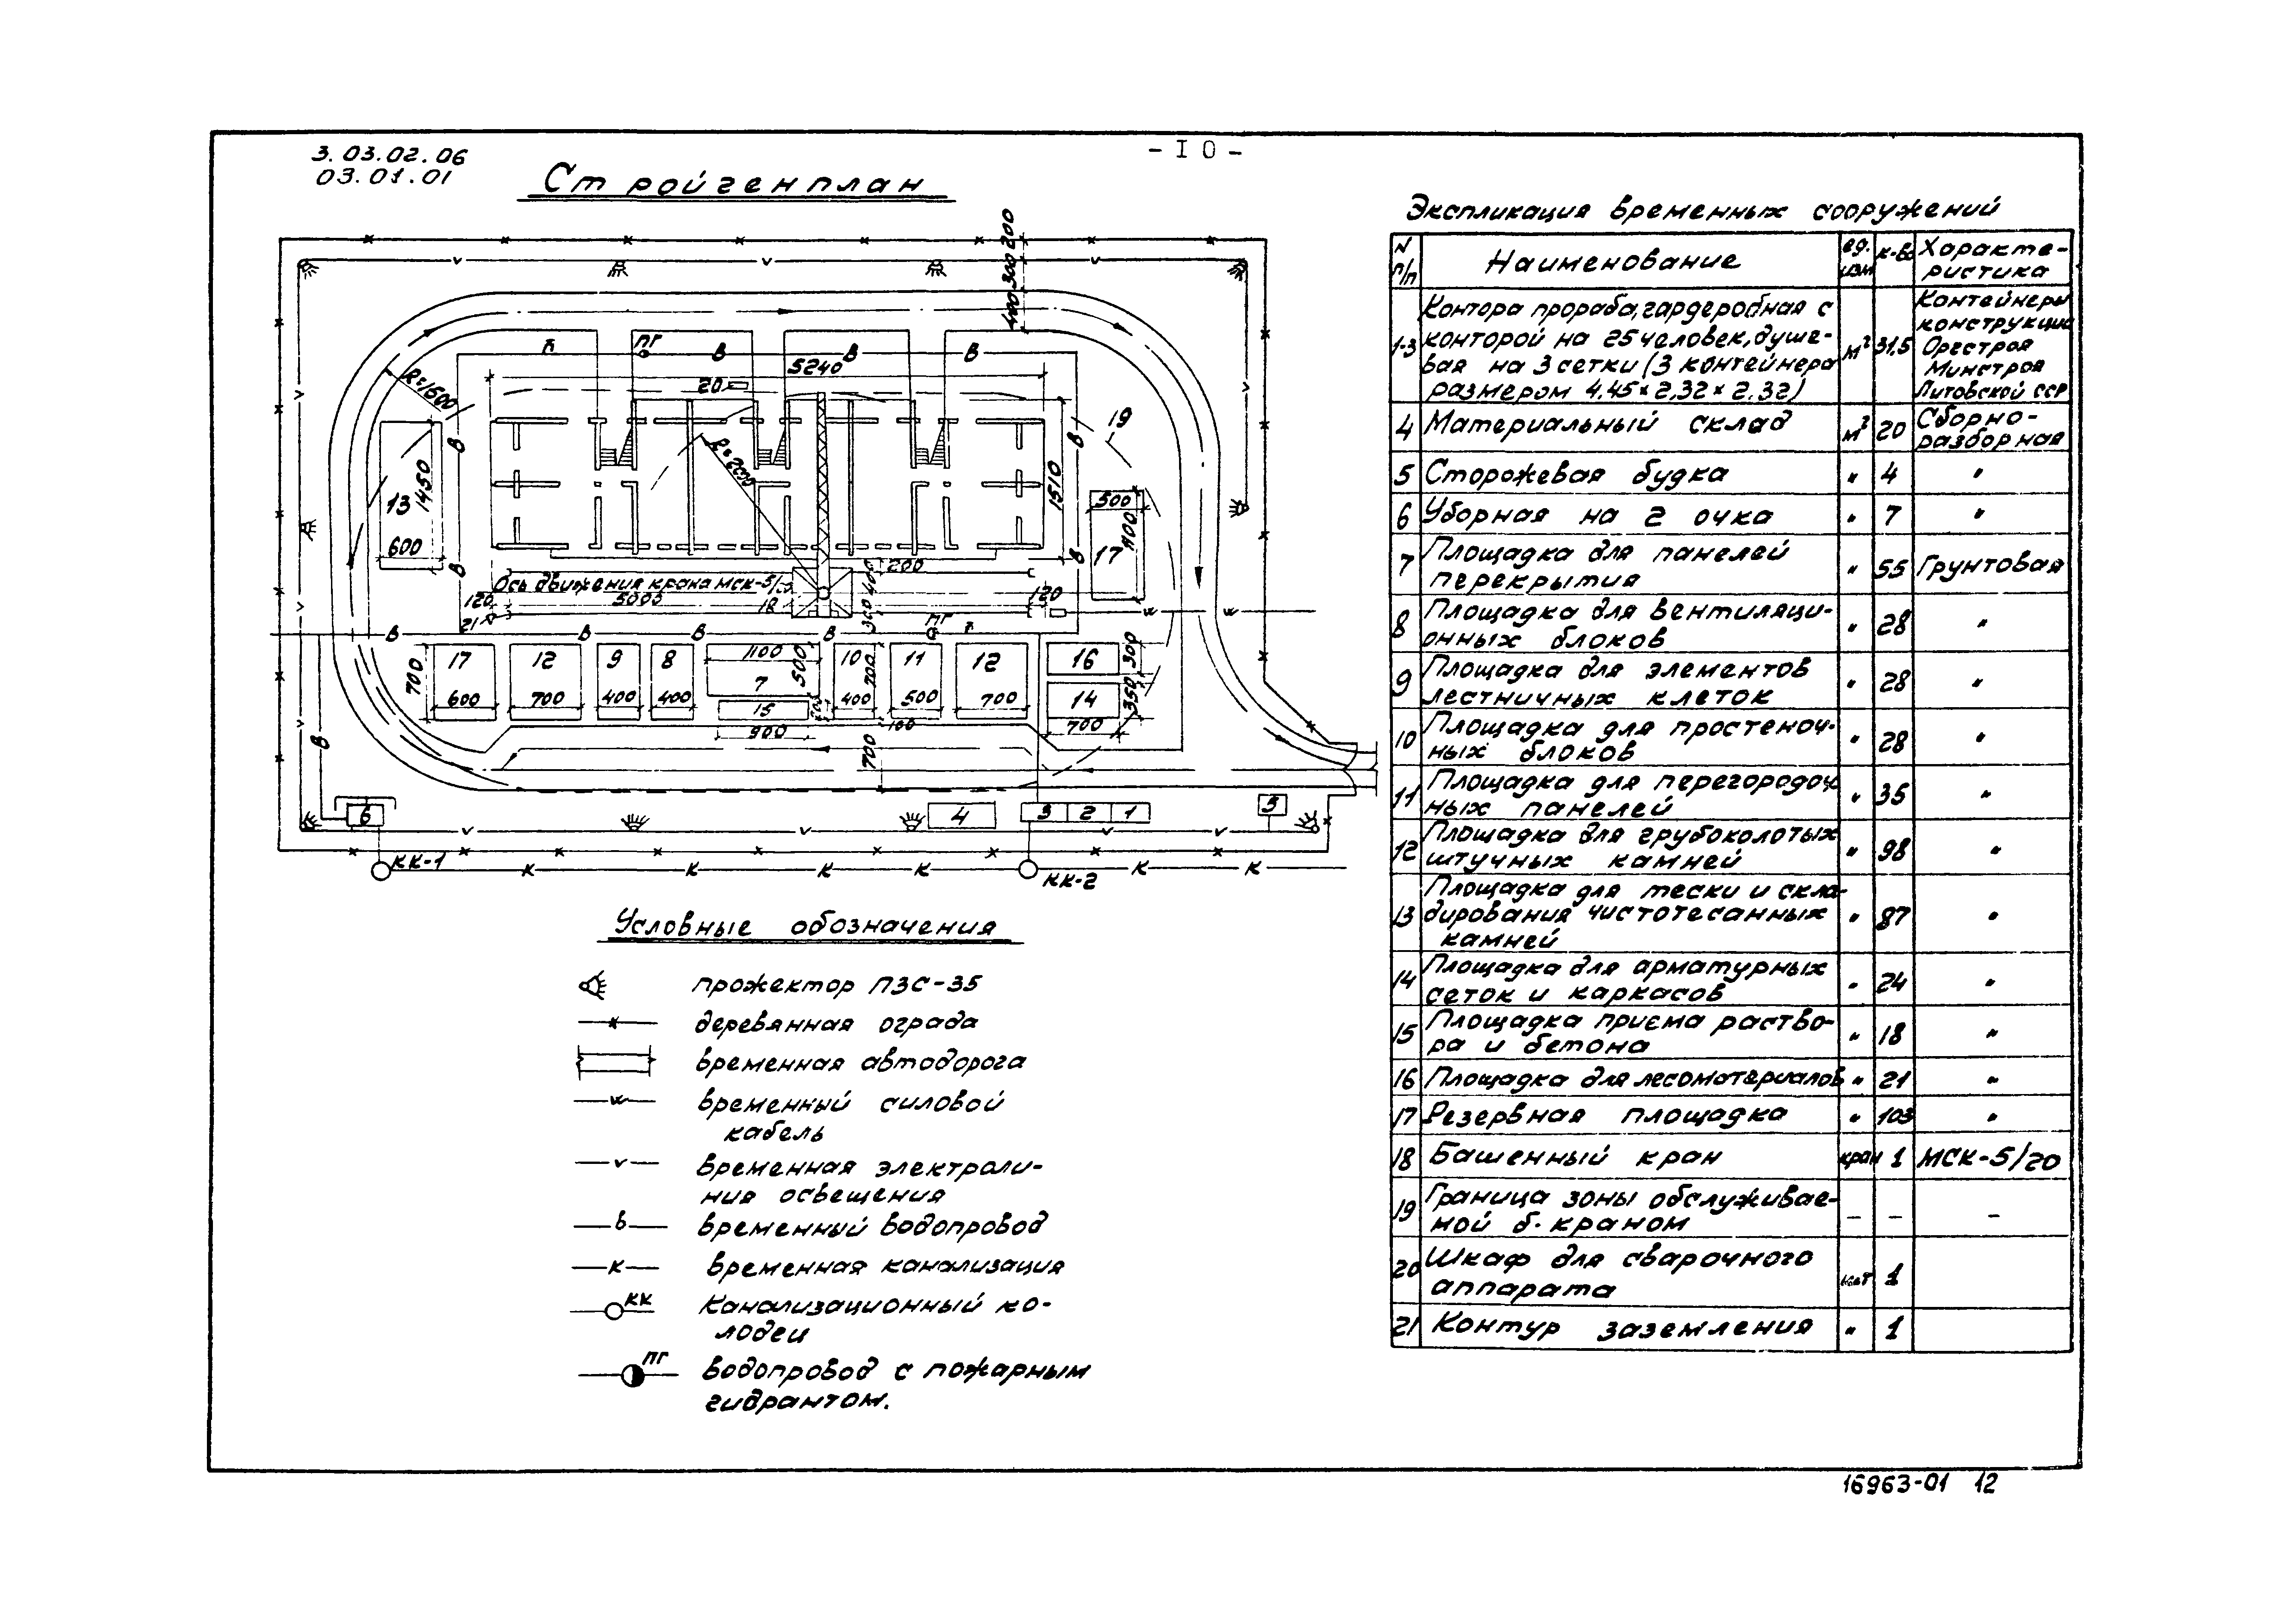 3.03.02.06
03.01.01
- I 0 -
Стройгенплан
200
300
400
ПГ
В
В
В
5240
20
R=1600
19
В
В
1450
13
600
В
R=2000
1510
В
500
1100
17
200
400
Ось движения крана МСК-5/20
5000
18
120
120
21
300
ПГ
w
w
В
В
В
В
700
17
12
9
8
1100
500
7
10
700
11
12
16
300
600
700
400
400
15
400
500
700
14
350
900
100
700
700
В
6
4
3
2
1
5
КК-1
К
К
К
К
КК-2
К
К
Условные обозначения
прожектор ПЗС-35
деревянная ограда
временная автодорога
w
временный силовой
кабель
v
временная электрали-
ния освещения
в
временный водопровод
к
временная канализация
КК
Канализационный ко-
лодец
ПГ
водопровод с пожарным
гидрантом.
Экспликация временных сооружений
N п/п Наименование ед. изм к-во Характе-
ристика
1-3 Контора прораба, гардеробная с
конторой на 25 человек, душе-
вая на 3 сетки (3 контейнера
размером 4.45×2.32×2.32) м² 31,5 Контейнеры
конструкции
Оргстроя
Минстроя
Литовской ССР
4 Материальный склад м² 20 Сборно-
разборная
5 Сторожевая будка " 4 "
6 Уборная на 2 очка " 7 "
7 Площадка для панелей
перекрытия " 55 Грунтовая
8 Площадка для вентиляци-
онных блоков " 28 "
9 Площадка для элементов
лестничных клеток " 28 "
10 Площадка для простеноч-
ных блоков " 28 "
11 Площадка для перегородоч
ных панелей " 35 "
12 Площадка для грубоколотых
штучных камней " 98 "
13 Площадка для тески и скла-
дирования чистотесанных
камней " 87 "
14 Площадка для арматурных
сеток и каркасов " 24 "
15 Площадка приема раство-
ра и бетона " 18 "
16 Площадка для лесоматериалов " 21 "
17 Резервная площадка " 103 "
18 Башенный кран кран 1 МСК-5/20
19 Граница зоны обслуживае-
мой б. краном – – –
20 Шкаф для сварочного
аппарата 1
21 Контур заземления " 1
16963-01 12